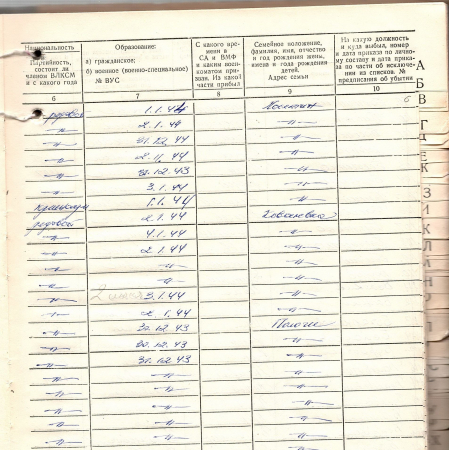 Национальность
Партийность, состоит ли членом ВЛКСМ и с какого года
Образование:
а) гражданское;
б) военное (военно-специальное)
№ ВУС
С какого времени в СА и ВМФ и каким военкоматом призван. Из какой части прибыл
Семейное положение, фамилия, имя, отчество и год рождения жены, имена и год рождения детей.
Адрес семьи
На какую должность и куда выбыл, номер и дата приказа по личному составу и дата приказа по части об исключении из списков. № предписания об убытии
6 7 8 9 10
рядовой 1.1.44
–"– 2.1.44 –"–
–"– 31.12.44 –"–
–"– –"–
–"– 31.12.43 –"–
–"– 3.1.44 –"–
1.1.44 –"–
рядовой 2.1.44
–"– 4.1.44 –"–
–"– 2.1.44 –"–
–"– –"– –"–
–"– –"– –"–
–"– 3.1.44 –"–
2.1.44 –"–
–"– 30.12.43 Пологи
–"– 30.12.43 –"–
–"– 31.12.43 –"–
–"– –"– –"–
–"– –"– –"–
–"– –"– –"–
–"– –"– –"–
–"– –"– –"–
А
Б
В
Г
Д
Е
К
З
И
К
Л
М
Н